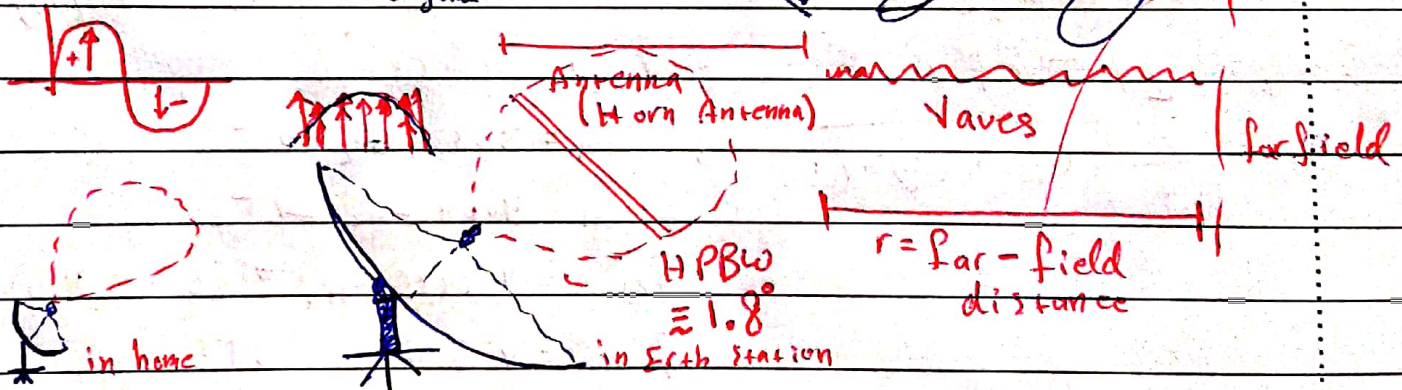 +
-
Antenna
(Horn Antenna)
Vaves
farfield
r = far - field
distance
HPBW
≡ 1.8°
in home
in Ecth station